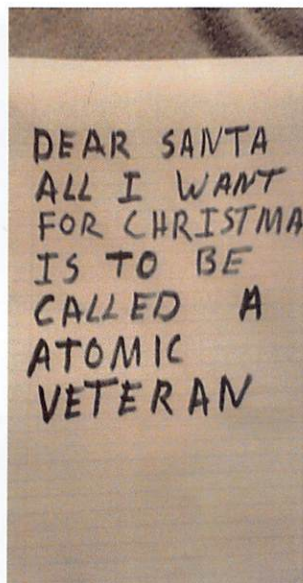 DEAR SANTA
ALL I WANT
FOR CHRISTMA
IS TO BE
CALLED A
ATOMIC
VETERAN